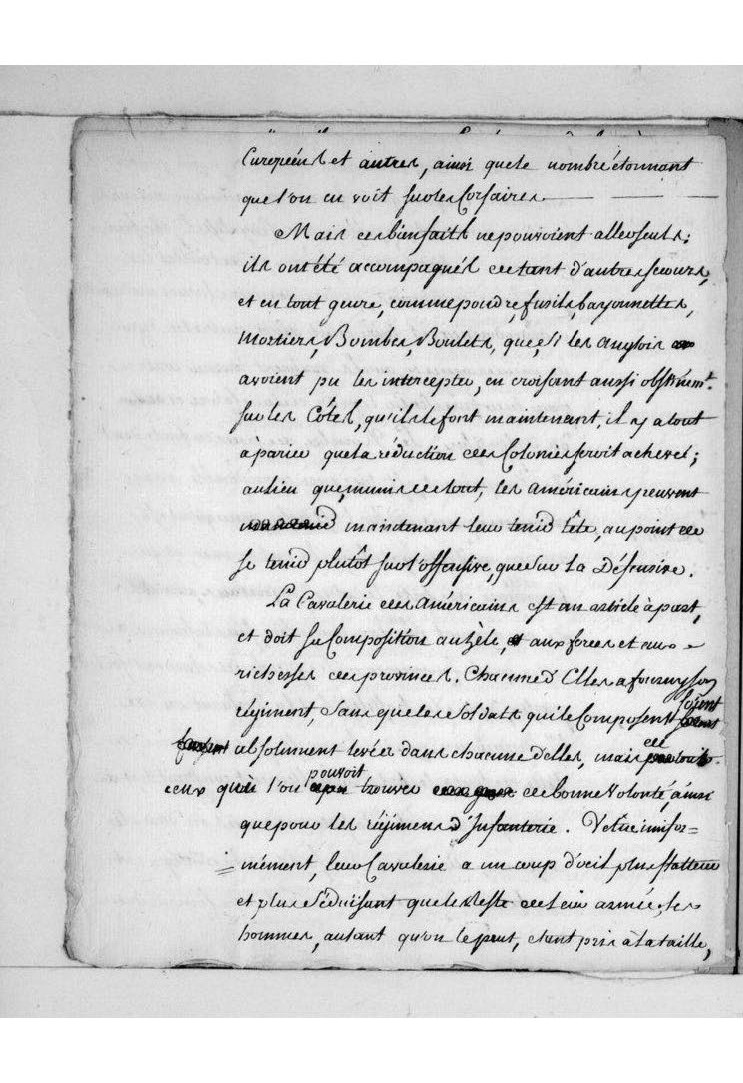 Européens et autres, ainsi que le nombre étonnant
que l'on en voit sur les Corsaires.
Mais ces bienfaits ne pouvoient aller seuls;
ils ont été accompagnés de tant d'autres secours,
et en tout genre, comme poudre, fusils, bayonnettes,
Mortiers, Bombes, Boulets, que, si les Anglois
avoient pu les intercepter, en croisant aussi obstinémt.
sur les Côtes, qu'ils le font maintenant, il y a tout
à parier que la réduction des Colonies seroit achevée;
au lieu que, munis de tout, les Américains peuvent
maintenant leur tenir tête, au point de
se tenir plutôt sur l'offensive, que sur la Défensive.
La Cavalerie des Américains est un article à part,
et doit sa Composition au zèle, aux forces et aux
richesses des provinces. Chacune d'Elles a fourny son
régiment, sans que les Soldats qui le Composent soient
absolument levés dans chacune d'elles, mais de
ceux que l'on pouvoit trouver de bonne Volonté, ainsi
que pour les régimens d'Infanterie. Vetue unifor=
=mément, leur Cavalerie a un coup d'oeil plus flatteur
et plus séduisant que le reste de leur armée, les
hommes, autant qu'on le peut, étant pris à la taille,